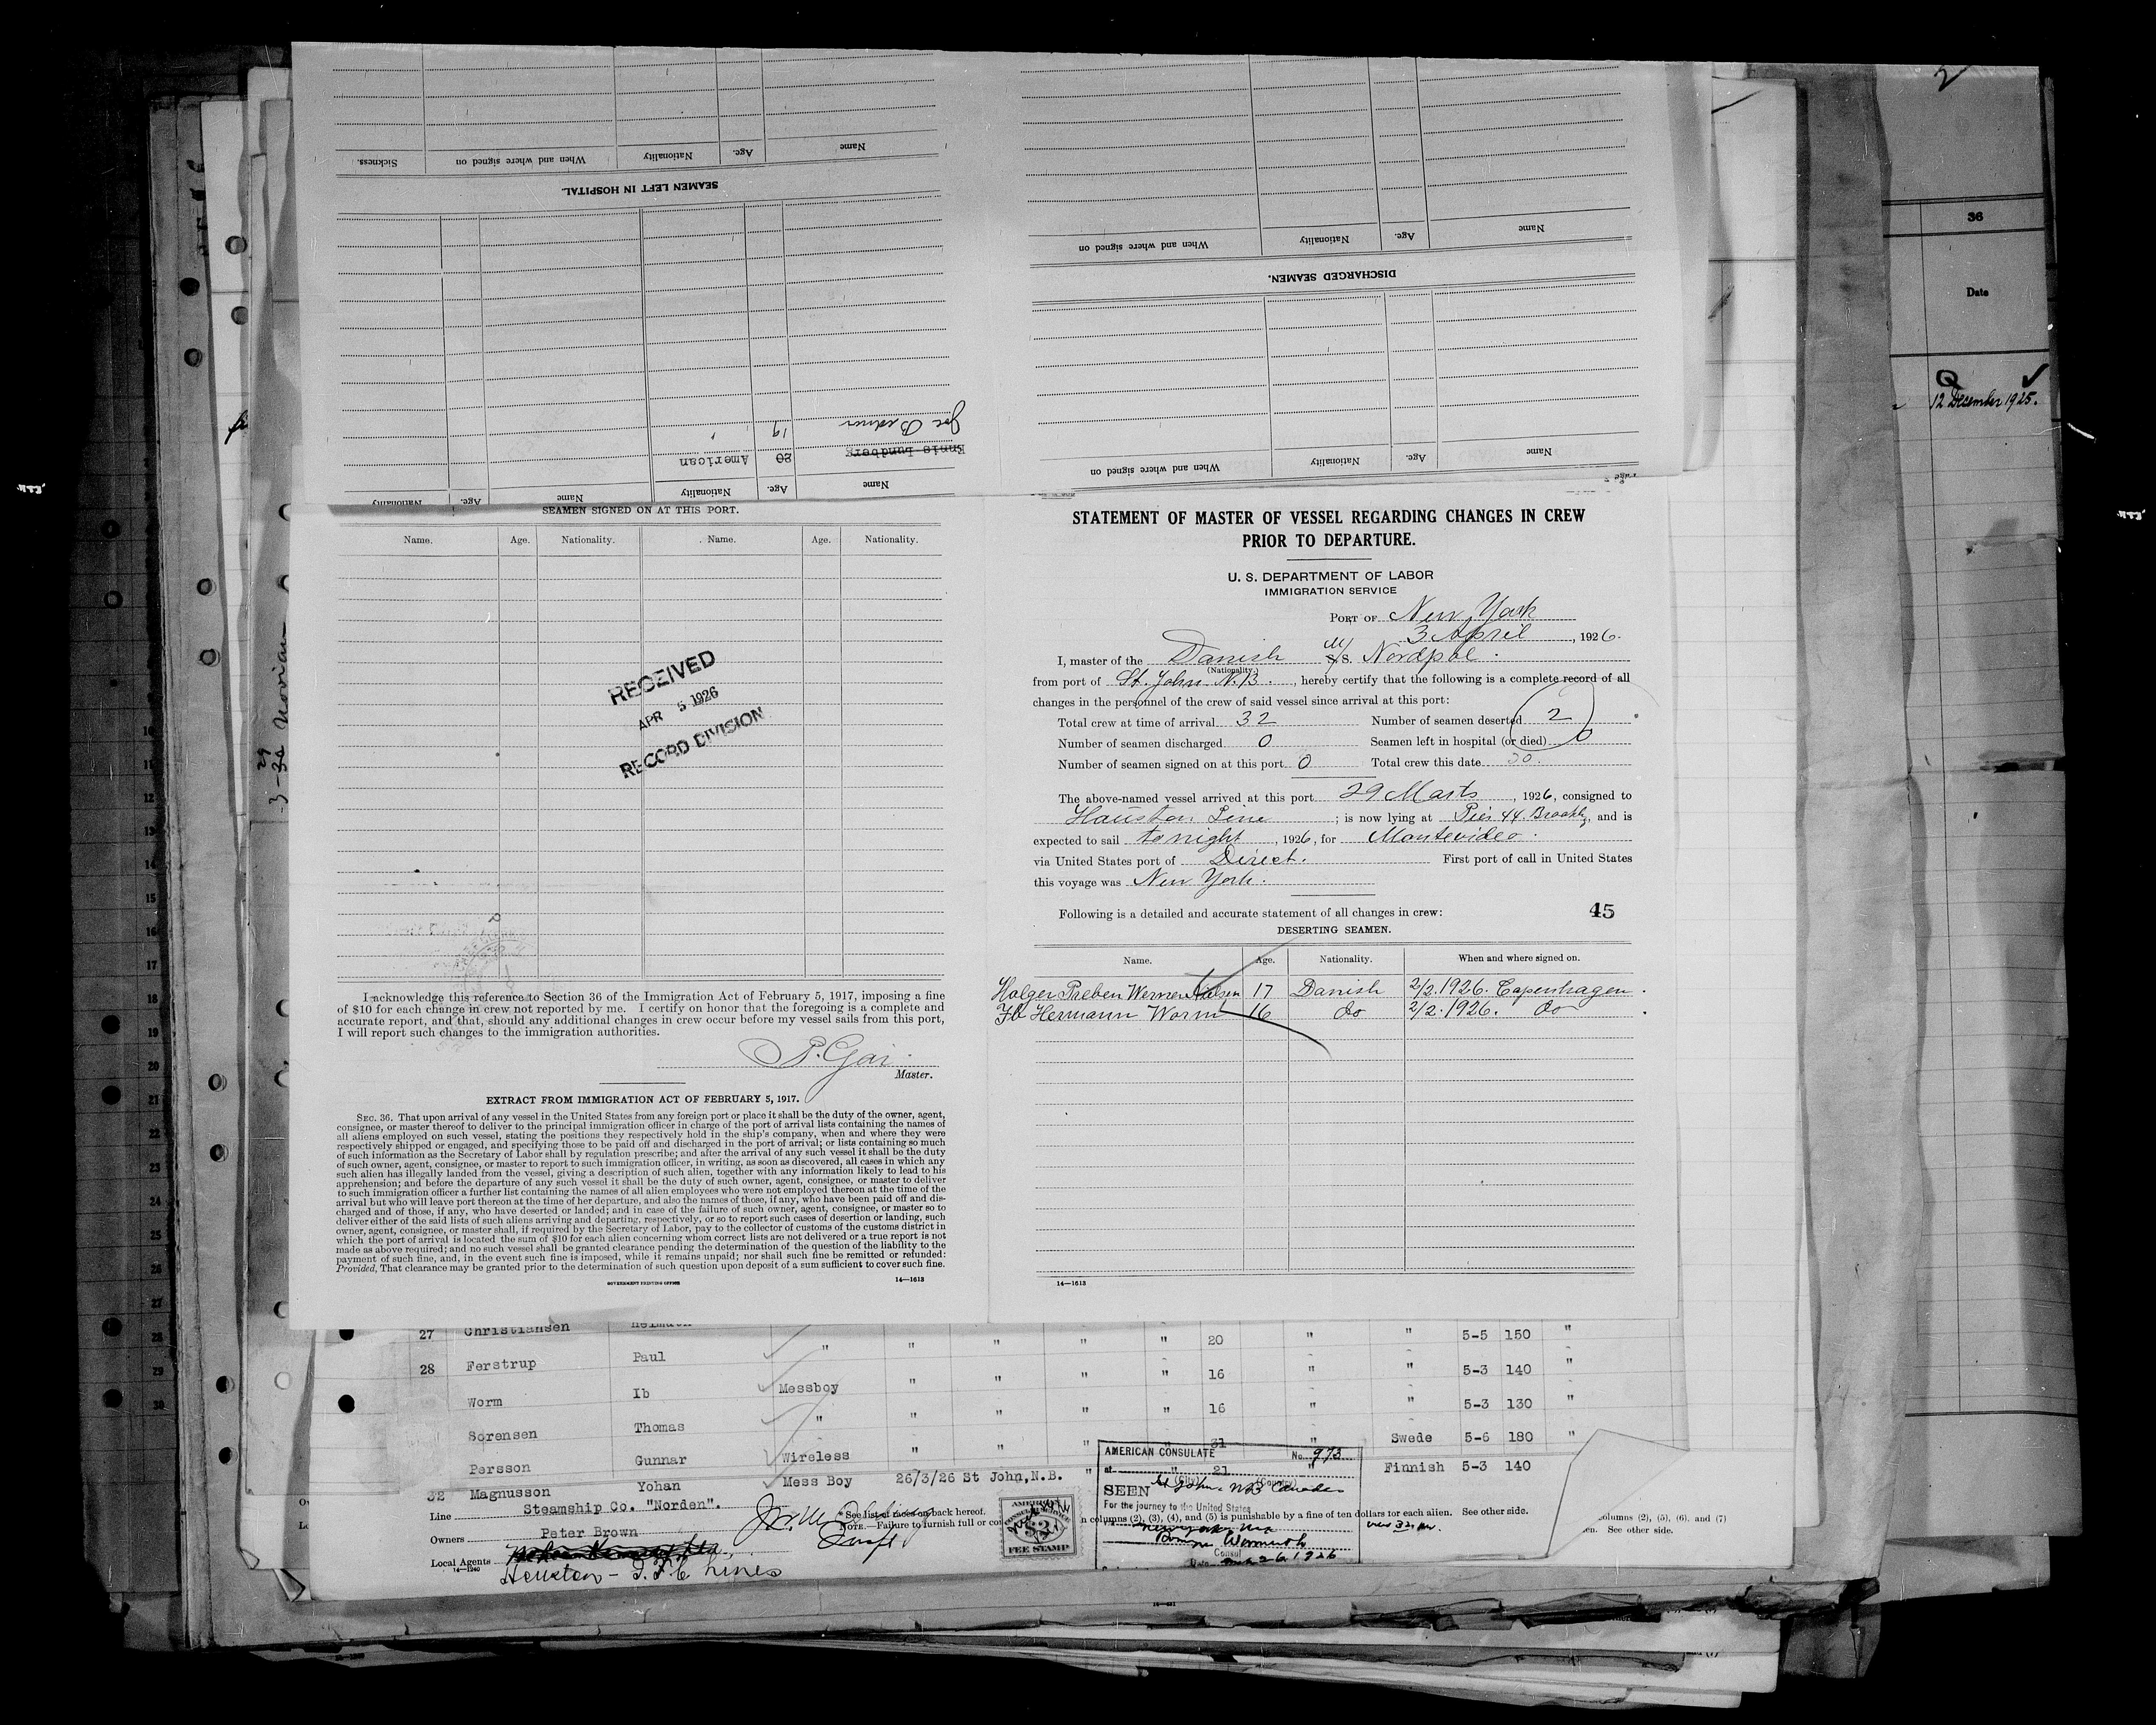 36
Date
12 December 1925.
Sickness.
When and where signed on
Nationality
Age.
Name
SEAMEN LEFT IN HOSPITAL.
Joe
19
Ennis Lundberg
20
American
Name
Age.
Nationality
Name
Age.
Nationality
Name
Age.
Nationality
When and where signed on
DISCHARGED SEAMEN.
Name
Age.
Nationality
When and where signed on
SEAMEN SIGNED ON AT THIS PORT.
Name. Age. Nationality. Name. Age. Nationality.
RECEIVED
APR 5 1926
RECORD DIVISION
I acknowledge this reference to Section 36 of the Immigration Act of February 5, 1917, imposing a fine
of $10 for each change in crew not reported by me. I certify on honor that the foregoing is a complete and
accurate report, and that, should any additional changes in crew occur before my vessel sails from this port,
I will report such changes to the immigration authorities.
Master.
EXTRACT FROM IMMIGRATION ACT OF FEBRUARY 5, 1917.
SEC. 36. That upon arrival of any vessel in the United States from any foreign port or place it shall be the duty of the owner, agent,
consignee, or master thereof to deliver to the principal immigration officer in charge of the port of arrival lists containing the names of
all aliens employed on such vessel, stating the positions they respectively hold in the ship's company, when and where they were
respectively shipped or engaged, and specifying those to be paid off and discharged in the port of arrival; or lists containing so much
of such information as the Secretary of Labor shall by regulation prescribe; and after the arrival of any such vessel it shall be the duty
of such owner, agent, consignee, or master to report to such immigration officer, in writing, as soon as discovered, all cases in which any
such alien has illegally landed from the vessel, giving a description of such alien, together with any information likely to lead to his
apprehension; and before the departure of any such vessel it shall be the duty of such owner, agent, consignee, or master to deliver
to such immigration officer a further list containing the names of all alien employees who were not employed thereon at the time of the
arrival but who will leave port thereon at the time of her departure, and also the names of those, if any, who have been paid off and dis-
charged and of those, if any, who have deserted or landed; and in case of the failure of such owner, agent, consignee, or master so to
deliver either of the said lists of such aliens arriving and departing, respectively, or so to report such cases of desertion or landing, such
owner, agent, consignee, or master shall, if required by the Secretary of Labor, pay to the collector of customs of the customs district in
which the port of arrival is located the sum of $10 for each alien concerning whom correct lists are not delivered or a true report is not
made as above required; and no such vessel shall be granted clearance pending the determination of the question of the liability to the
payment of such fine, and, in the event such fine is imposed, while it remains unpaid; nor shall such fine be remitted or refunded:
Provided, That clearance may be granted prior to the determination of such question upon deposit of a sum sufficient to cover such fine.
GOVERNMENT PRINTING OFFICE
14—1613
STATEMENT OF MASTER OF VESSEL REGARDING CHANGES IN CREW
PRIOR TO DEPARTURE.
U. S. DEPARTMENT OF LABOR
IMMIGRATION SERVICE
PORT OF New York
3 April, 1926.
I, master of the Danish M/S. Nordpol.
(Nationality.)
from port of St. John N.B., hereby certify that the following is a complete record of all
changes in the personnel of the crew of said vessel since arrival at this port:
Total crew at time of arrival 32 Number of seamen deserted 2
Number of seamen discharged 0 Seamen left in hospital (or died) 0
Number of seamen signed on at this port 0 Total crew this date 30.
The above-named vessel arrived at this port 29 Marts, 1926, consigned to
Houston Line; is now lying at Pier 44. Brookly, and is
expected to sail tonight, 1926, for Montevideo.
via United States port of Direct. First port of call in United States
this voyage was New York.
Following is a detailed and accurate statement of all changes in crew: 45
DESERTING SEAMEN.
Name. Age. Nationality. When and where signed on.
Holger Preben Werner Nielsen 17 Danish 2/2.1926. Copenhagen.
Ib Hermann Worm 16 do 2/2.1926. do
14—1613
27 Christiansen Helmuth " " " " 20 " " 5-5 150 "
28 Ferstrup Paul
Messboy " " " " 16 " " 5-3 140 "
Worm Ib
" " " " " 16 " " 5-3 130 "
Sorensen Thomas
Persson Gunnar Wireless " " " " 31 " Swede 5-6 180 "
32 Magnusson Yohan Mess Boy 26/3/26 St John,N.B. " " 21 Finnish 5-3 140
Line Steamship Co. "Norden".
Owners Peter Brown
Local Agents
Houston - Lines
14—1240
* See list of races on back hereof.
NOTE.—Failure to furnish full or
columns (2), (3), (4), and (5) is punishable by a fine of ten dollars for each alien. See other side.
AMERICAN
CONSULAR SERVICE
$2
FEE STAMP
AMERICAN CONSULATE No. 973
at
(City) (Country)
SEEN St John. N.B. Canada
For the journey to the United States
Consul
Date Mar 26 1926
columns (2), (5), (6), and (7)
See other side.